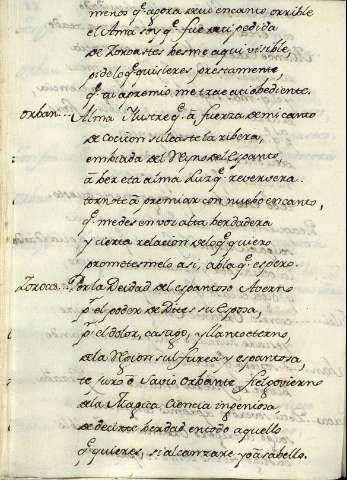 menos q.e agora de tu encanto orrible
el Alma soy q.e fue a ti pedida
de Zoroastes hesme aqui visible,
pide lo q.e quisieres prestamente,
q.e tu apremio me trae a ti obediente.
Orban... Alma Ilustre q.e à fuerza de mi canto
de Cociton sulcaste la ribera,
embiada del Reyno del Espanto,
à ber esta alma Luz q.e reverbera
tornote à premiar con nuebo encanto,
q.e me des en voz alta berdadera
y cierta relacion de lo q.e quiero
prometesmelo asi, abla q.e espero.
Zoroa... Por la Deidad del espantoso Averno
p.r el poder de Dites su Esposa,
p.r el dolor, castigo, y llanto eterno,
de la Region sulfurea y espantosa,
te juro ò Savio Orbante fiel govierno
de la Magica Ciencia ingeniosa
de decirte berdad en todo aquello
q.e quieres, si alcanzare yo à sabello.